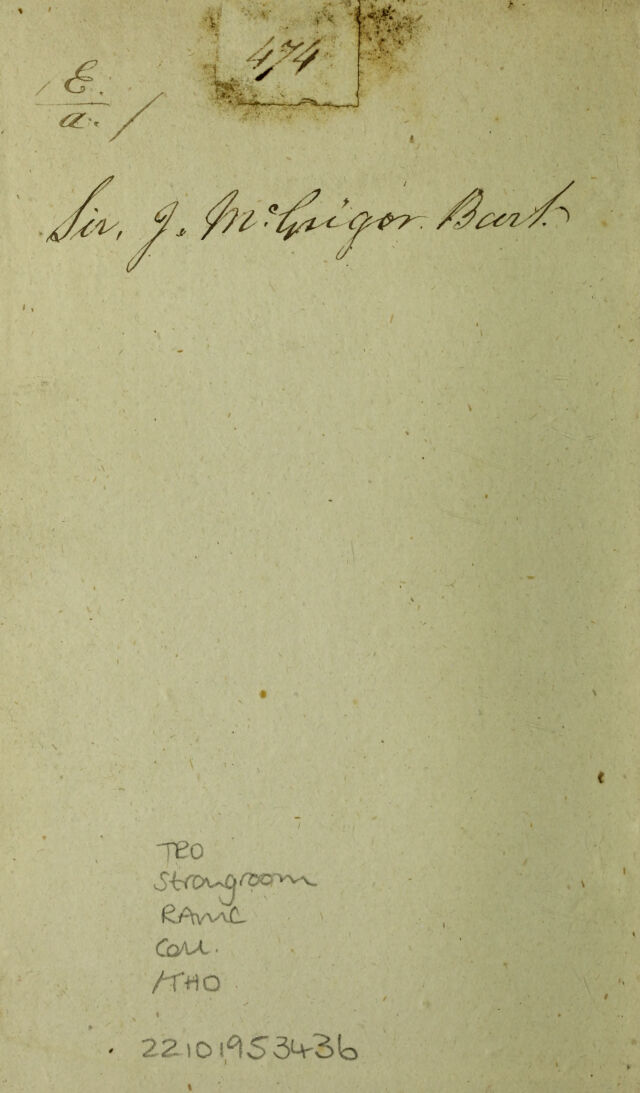 474
E.
a.
Sir. J. McGrigor. Bart.
TRO
Strongroom
RAMC
Coll.
/THO
22101953436